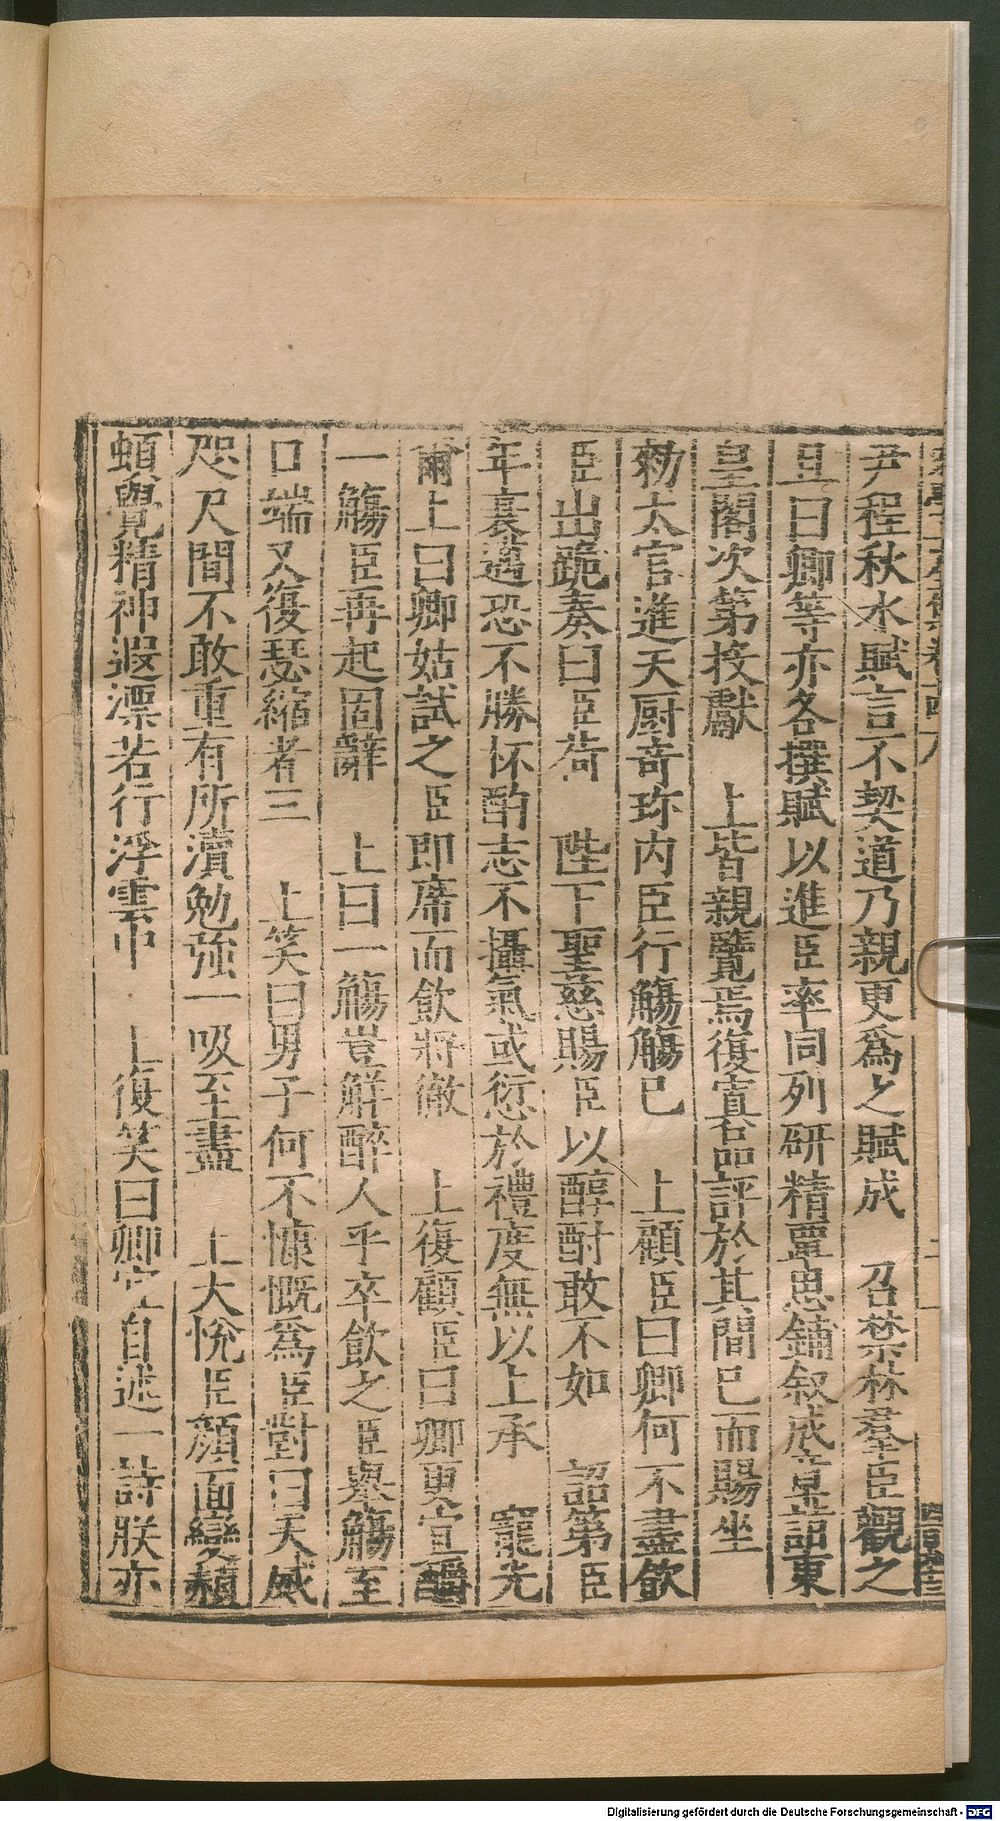 尹程秋水賦言不契道乃親更爲之賦成　召禁林羣臣觀之
且曰卿等亦各撰賦以進臣率同列研精覃思鋪叙成章詣東
皇閣次第投獻　上皆親覽焉復寘品評於其間已而賜坐
勑太官進天厨奇珍内臣行觴觴已　上顧臣曰卿何不盡飲
臣出跪奏曰臣荷　陛下聖慈賜臣以醇酎敢不如　詔第臣
年衰邁恐不勝桮酌志不攝氣或愆於禮度無以上承　寵光
爾上曰卿姑試之臣即席而飲將徹　上復顧臣曰卿更宜釂
一觴臣再起固辭　上曰一觴豈解醉人乎卒飲之臣舉觴至
口端又復瑟縮者三　上笑曰男子何不慷慨爲臣對曰天威
咫尺間不敢重有所瀆勉強一吸至盡　上大悅臣顔面變頳
頓覺精神遐漂若行浮雲中　上復笑曰卿宜自述一詩朕亦
Digitalisierung gefördert durch die Deutsche Forschungsgemeinschaft - DFG